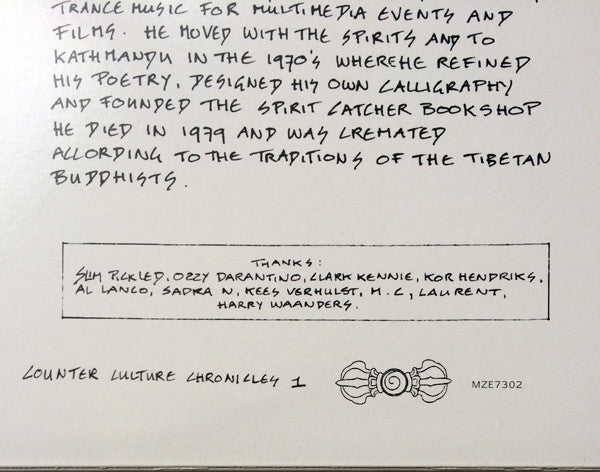 TRANCE MUSIC FOR MULTIMEDIA EVENTS AND
FILMS. HE MOVED WITH THE SPIRITS AND TO
KATHMANDU IN THE 1970'S WHERE HE REFINED
HIS POETRY, DESIGNED HIS OWN CALLIGRAPHY
AND FOUNDED THE SPIRIT CATCHER BOOKSHOP
HE DIED IN 1979 AND WAS CREMATED
ACCORDING TO THE TRADITIONS OF THE TIBETAN
BUDDHISTS.
THANKS:
SLIM PICKLED, OZZY DARANTINO, CLARK KENNIE, KOR HENDRIKS,
AL LANCO, SADRA N, KEES VERHULST, M.C, LAURENT,
HARRY WAANDERS.
COUNTER CULTURE CHRONICLES 1
MZE7302